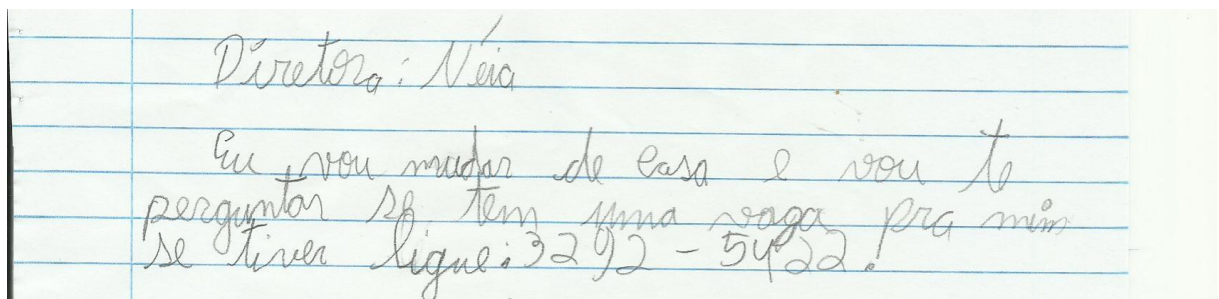 Diretora: Néia
Eu vou mudar de casa e vou te
perguntar se tem uma vaga pra mim
se tiver ligue: 3292-5422!